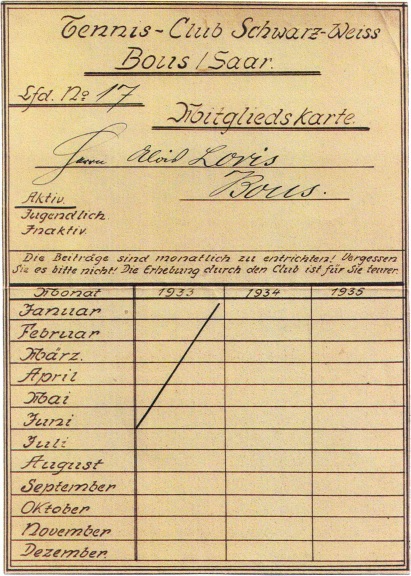 Tennis-Club Schwarz-Weiss
Bous/Saar.
Lfd. No 17
Mitgliedskarte.
Herrn Alois Loris
Bous.
Aktiv.
Jugendlich.
Inaktiv.
Die Beiträge sind monatlich zu entrichten! Vergessen
Sie es bitte nicht! Die Erhebung durch den Club ist für Sie teurer.
Monat 1933 1934 1935
Januar
Februar
März.
April
Mai
Juni
Juli
August
September
Oktober
November
Dezember